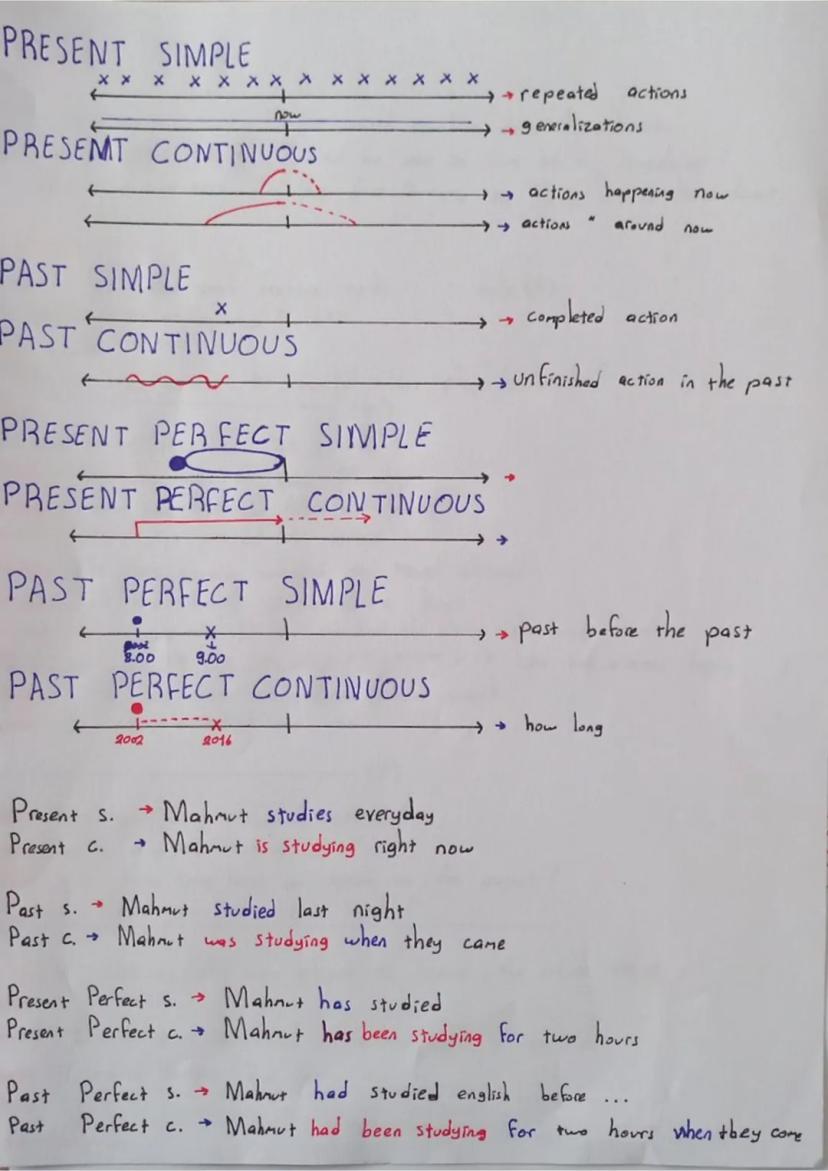 PRESENT SIMPLE
x x x x x x x x x x x x x x
→ repeated actions
now
→ generalizations
PRESENT CONTINUOUS
→ actions happening now
→ actions " around now
PAST SIMPLE
x
→ completed action
PAST CONTINUOUS
→ unfinished action in the past
PRESENT PERFECT SIMPLE
→
PRESENT PERFECT CONTINUOUS
→
PAST PERFECT SIMPLE
x
→ past before the past
8.00 9.00
PAST PERFECT CONTINUOUS
x
→ how long
2002 2016
Present s. → Mahmut studies everyday
Present c. → Mahmut is studying right now
Past s. → Mahmut studied last night
Past c. → Mahmut was studying when they came
Present Perfect s. → Mahmut has studied
Present Perfect c. → Mahmut has been studying for two hours
Past Perfect s. → Mahmut had studied english before ...
Past Perfect c. → Mahmut had been studying for two hours when they come